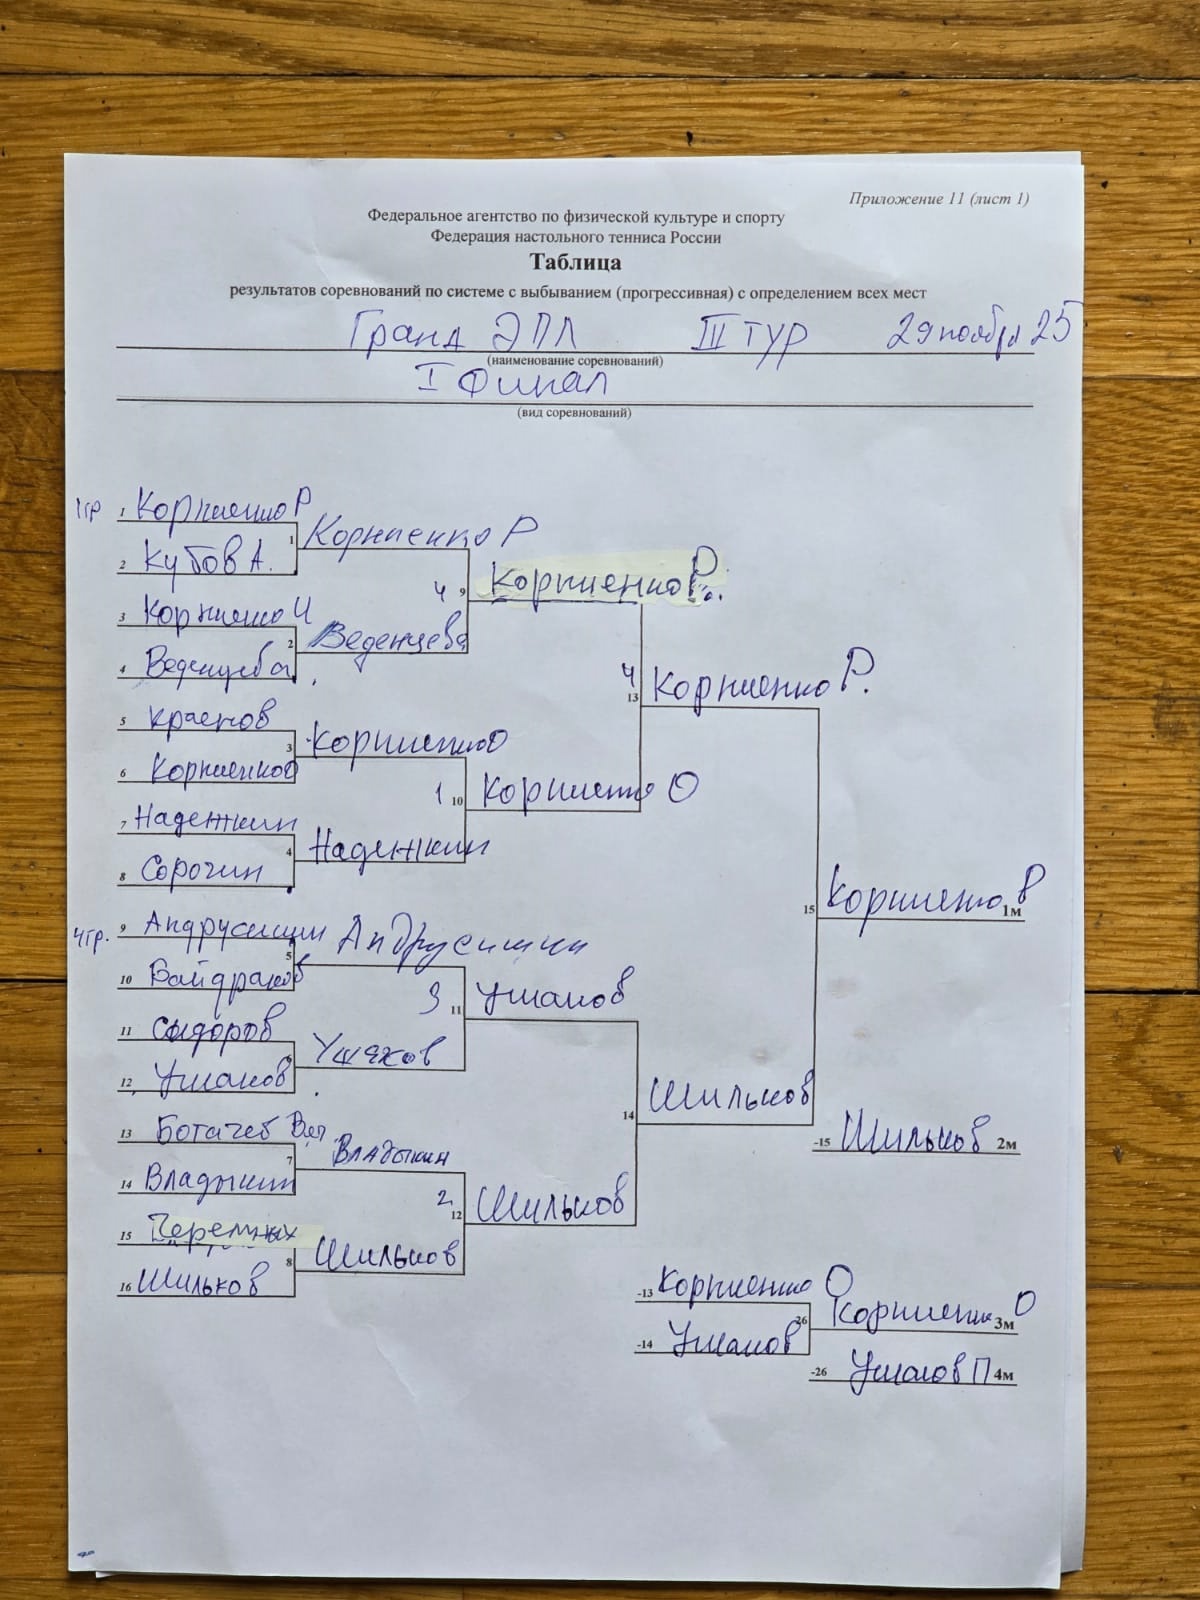 Приложение 11 (лист 1)
Федеральное агентство по физической культуре и спорту
Федерация настольного тенниса России
Таблица
результатов соревнований по системе с выбыванием (прогрессивная) с определением всех мест
Гранд ЭПЛ III тур 29 ноября 25
(наименование соревнований)
I Финал
(вид соревнований)
1гр 1 Корниенко Р
1 Корниенко Р
2 Кубов А.
4 9 Корниенко Р.
3 Корниенко И
2 Веденцева
4 Веденцева
4 13 Корниенко Р.
5 Краснов
3 Корниенко О
6 Корниенко О
1 10 Корниенко О
7 Надежкин
4 Надежкин
8 Сорочин
15 Корниенко Р 1м
4гр. 9 Андрусишин
5 Андрусишин
10 Байдраков
3 11 Ушаков
11 Сидоров
6 Ушаков
12 Ушаков
14 Шильков
-15 Шильков 2м
13 Богачев Вяч
7 Владыкин
14 Владыкин
2 12 Шильков
15 Черемных
8 Шильков
16 Шильков
-13 Корниенко О
26 Корниенко О 3м
-14 Ушаков
-26 Ушаков П 4м